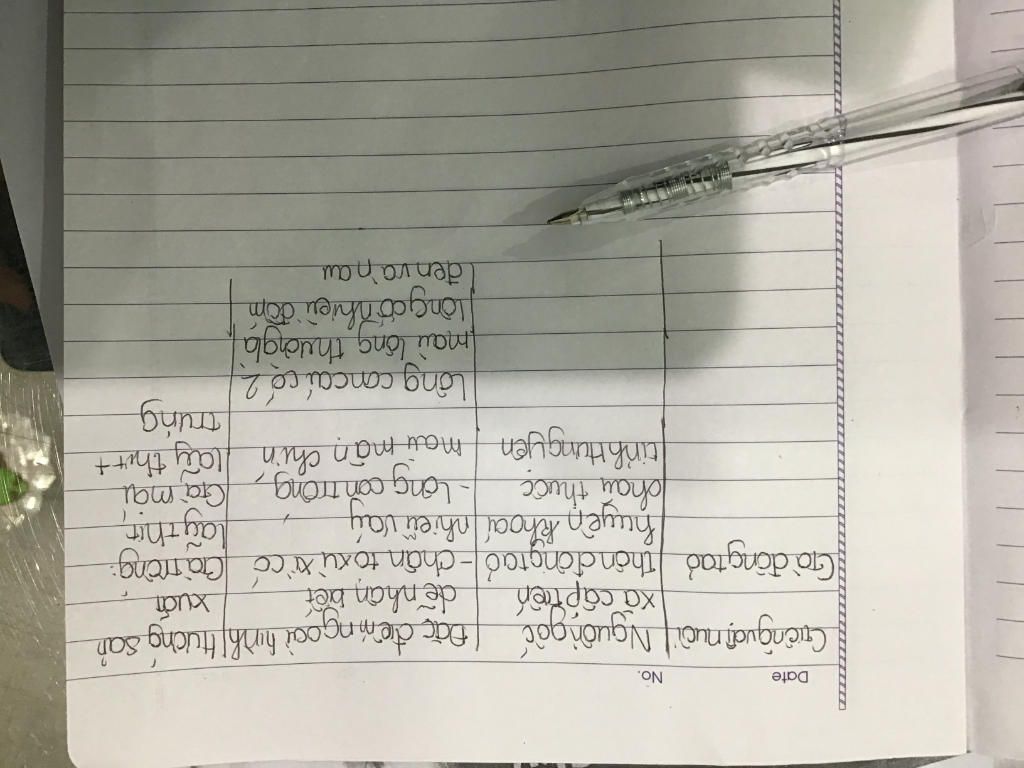 Date No.
Giống vật nuôi Nguồn gốc Đặc điểm ngoại hình Hướng sản
xã cấp tiến dễ nhận biết xuất
Gà đông taỏ thôn đông taỏ - chân to xù xì có Gà trống:
huyện khoái nhiều vảy lấy thịt
châu thuộc - Lông con trống Gà mái
tỉnh Hưng yên màu mận chín lấy thịt +
Lông con cái có 2 trứng
màu lông thường là
lông có nhiều đốm
đen và nâu